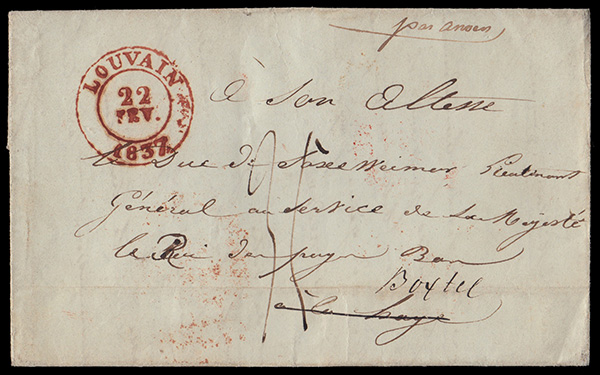 par anvers
LOUVAIN
22
FEV.
1837
à Son Altesse
le Duc de Saxe Weimar Lieutenant
Général au Service de Sa Majesté
le Roi des pays Bas
Boxtel
à la haye